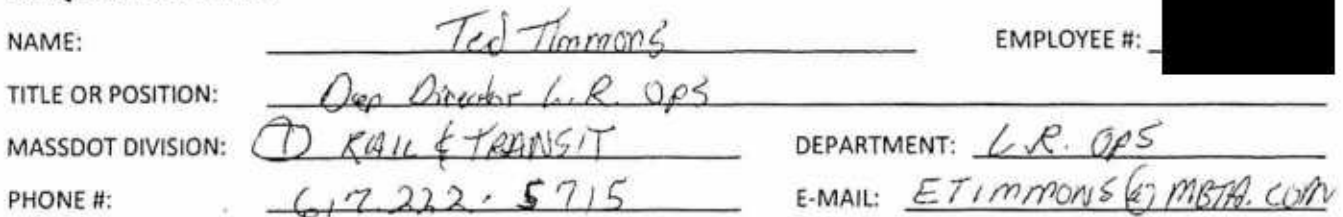 NAME: Ted Timmons EMPLOYEE #:
TITLE OR POSITION: Dep Director L.R. OPS
MASSDOT DIVISION: RAIL & TRANSIT DEPARTMENT: L.R. OPS
PHONE #: 617.222.5715 E-MAIL: ETIMMONS@MBTA.COM